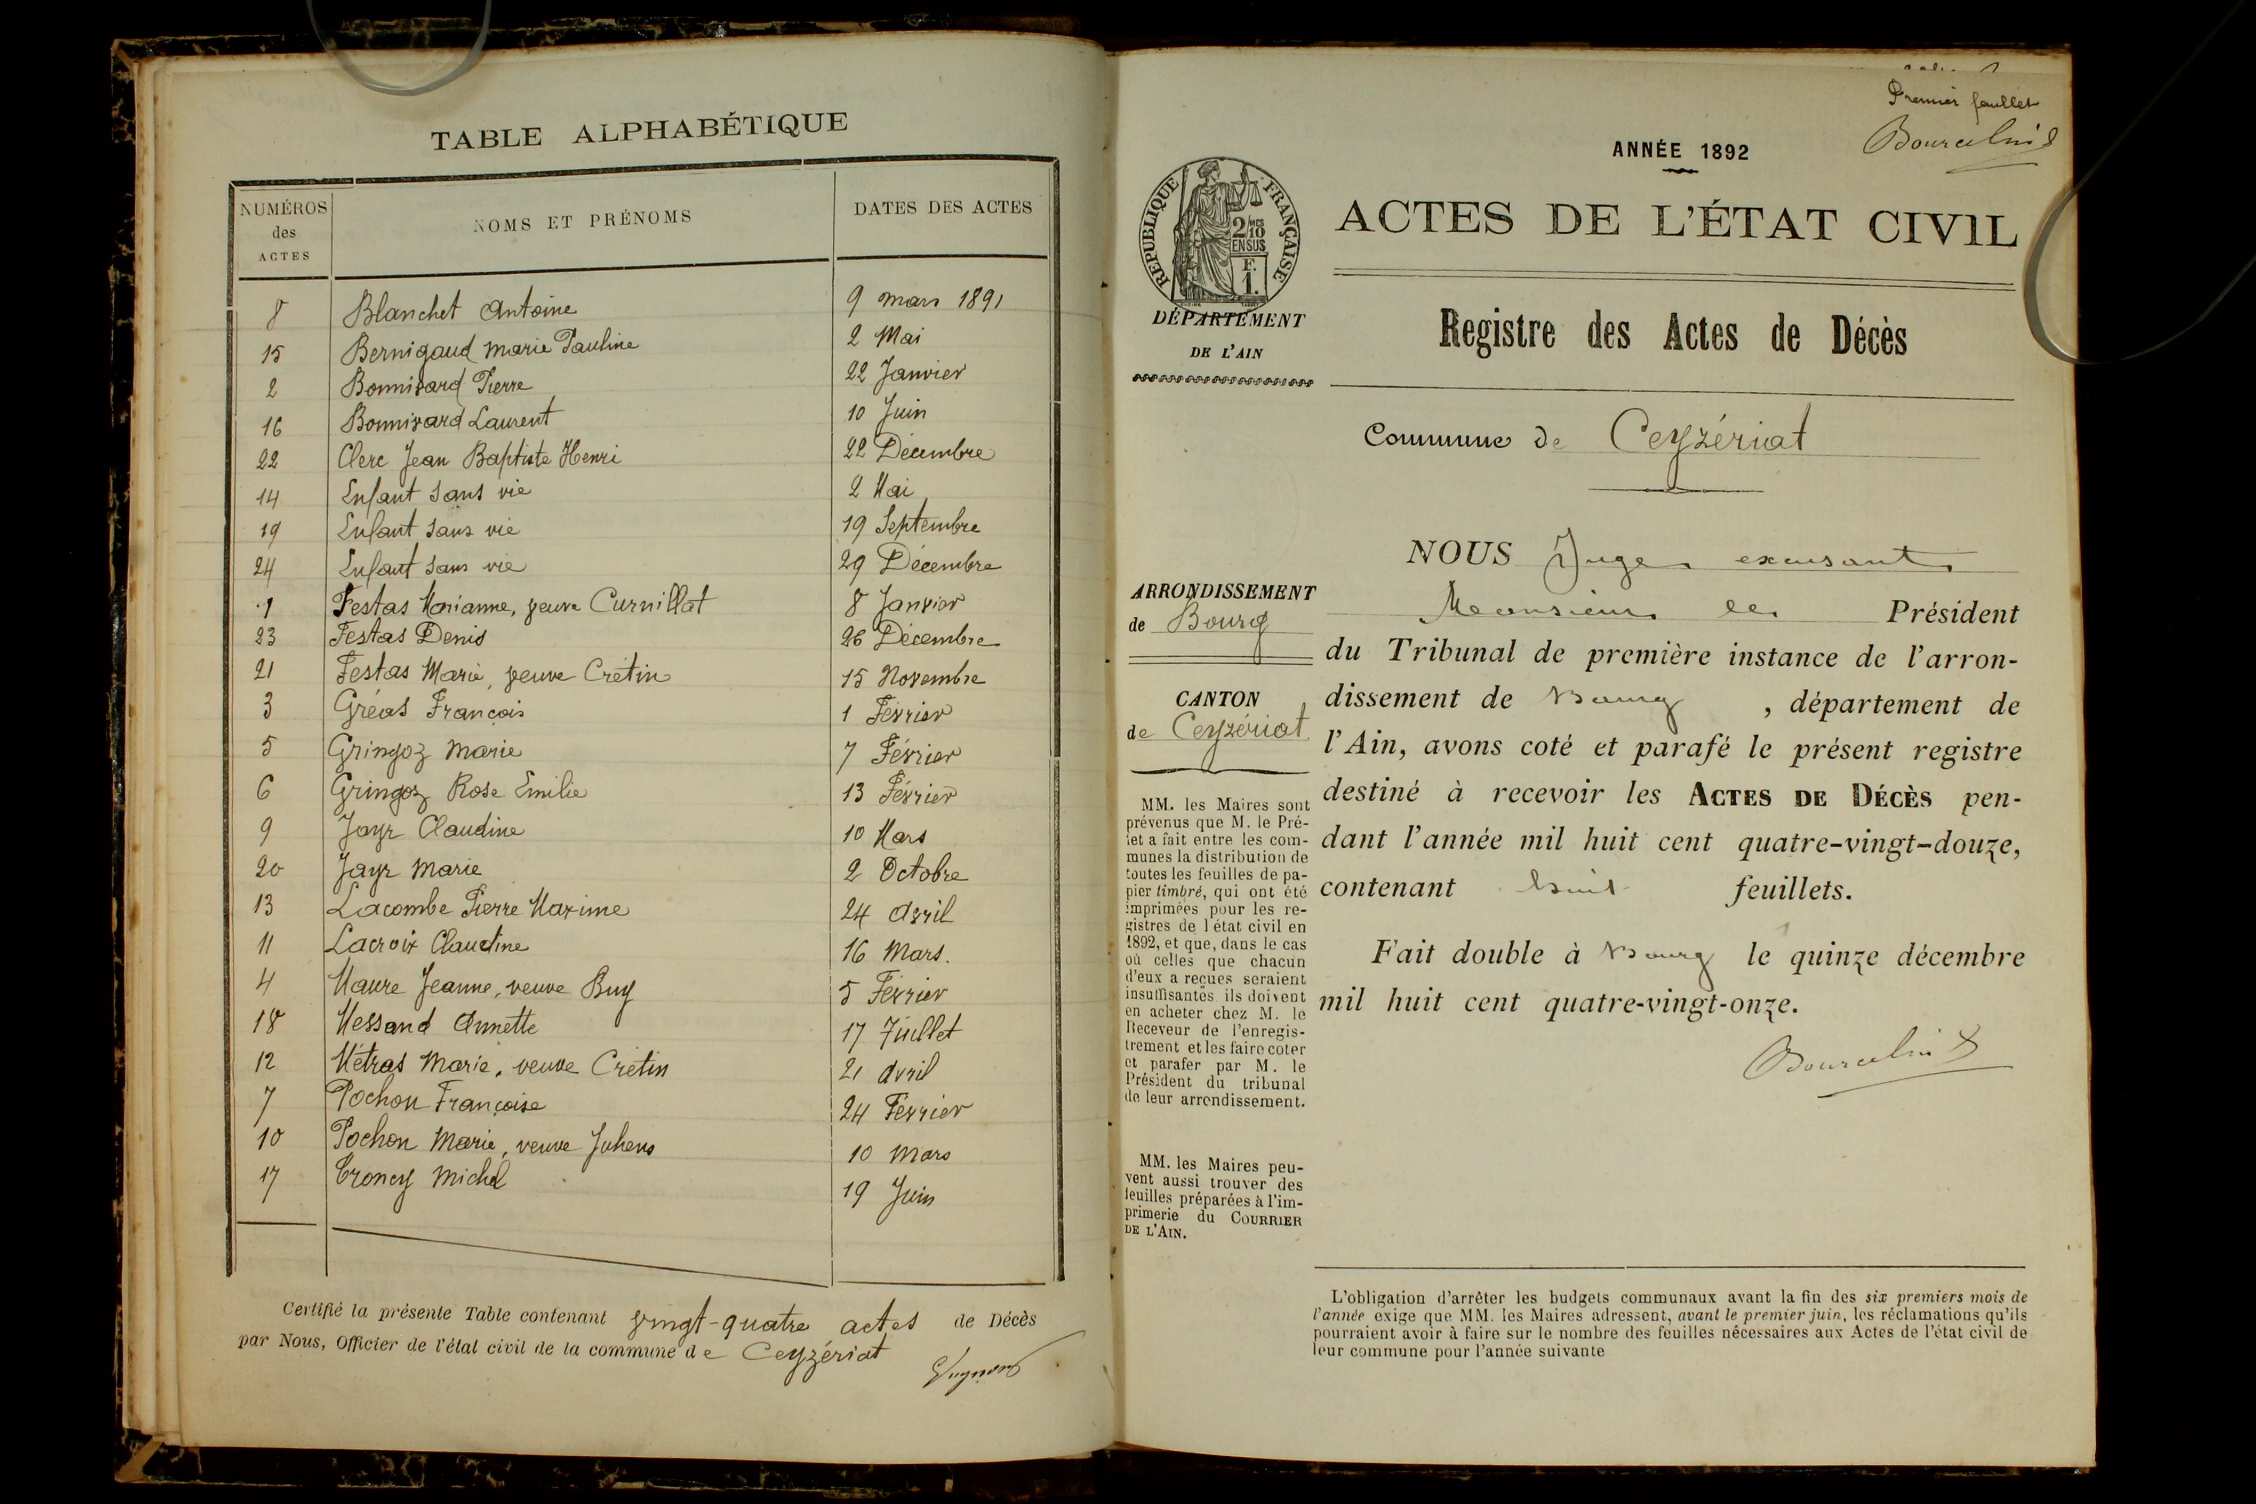 TABLE ALPHABÉTIQUE
NUMÉROS
des
ACTES
NOMS ET PRÉNOMS
DATES DES ACTES
8 Blanchet Antoine 9 mars 1891
15 Bernigaud Marie Pauline 2 Mai
2 Bonnivard Pierre 22 Janvier
16 Bonnivard Laurent 10 Juin
22 Clerc Jean Baptiste Henri 22 Décembre
14 Enfant sans vie 2 Mai
19 Enfant sans vie 19 Septembre
24 Enfant sans vie 29 Décembre
1 Festas Marianne, veuve Curnillat 8 Janvier
23 Festas Denis 26 Décembre
21 Festas Marie, veuve Crétin 15 Novembre
3 Gréas François 1 Février
5 Gringoz Marie 7 Février
6 Gringoz Rose Emilie 13 Février
9 Jayr Claudine 10 Mars
20 Jayr Marie 2 Octobre
13 Lacombe Pierre Maxime 24 Avril
11 Lacroix Claudine 16 Mars.
4 Maure Jeanne, veuve Buy 5 Février
18 Messand Annette 17 Juillet
12 Métras Marie, veuve Crétin 21 Avril
7 Pochon Françoise 24 Février
10 Pochon Marie, veuve Juhens 10 Mars
17 Troncy Michel 19 Juin
Certifié la présente Table contenant vingt-quatre actes de Décès
par Nous, Officier de l'état civil de la commune de Ceyzériat
Premier feuillet
ANNÉE 1892
RÉPUBLIQUE FRANÇAISE
2/10
EN SUS
F.
1.
ACTES DE L'ÉTAT CIVIL
DÉPARTEMENT
DE L'AIN
Registre des Actes de Décès
Commune de Ceyzériat
ARRONDISSEMENT
de Bourg
CANTON
de Ceyzériat
MM. les Maires sont
prévenus que M. le Pré-
fet a fait entre les com-
munes la distribution de
toutes les feuilles de pa-
pier timbré, qui ont été
imprimées pour les re-
gistres de l'état civil en
1892, et que, dans le cas
où celles que chacun
d'eux a reçues seraient
insuffisantes ils doivent
en acheter chez M. le
Receveur de l'enregis-
trement et les faire coter
et parafer par M. le
Président du tribunal
de leur arrondissement.
MM. les Maires peu-
vent aussi trouver des
feuilles préparées à l'im-
primerie du COURRIER
DE L'AIN.
NOUS Juge excusant
Monsieur le Président
du Tribunal de première instance de l'arron-
dissement de Bourg, département de
l'Ain, avons coté et parafé le présent registre
destiné à recevoir les ACTES DE DÉCÈS pen-
dant l'année mil huit cent quatre-vingt-douze,
contenant huit feuillets.
Fait double à Bourg le quinze décembre
mil huit cent quatre-vingt-onze.
L'obligation d'arrêter les budgets communaux avant la fin des six premiers mois de
l'année exige que MM. les Maires adressent, avant le premier juin, les réclamations qu'ils
pourraient avoir à faire sur le nombre des feuilles nécessaires aux Actes de l'état civil de
leur commune pour l'année suivante